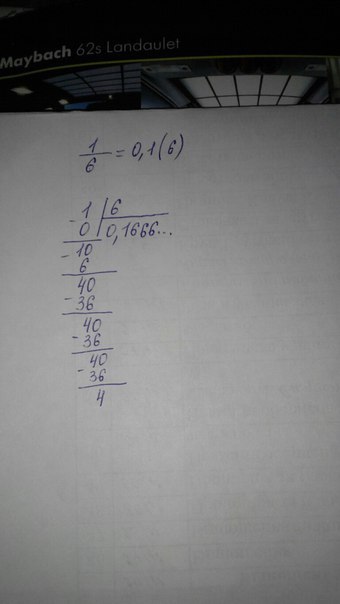 Maybach 62s Landaulet
1/6 = 0,1(6)
- 1 | 6
0 | 0,1666...
- 10
6
40
- 36
40
- 36
- 40
36
4